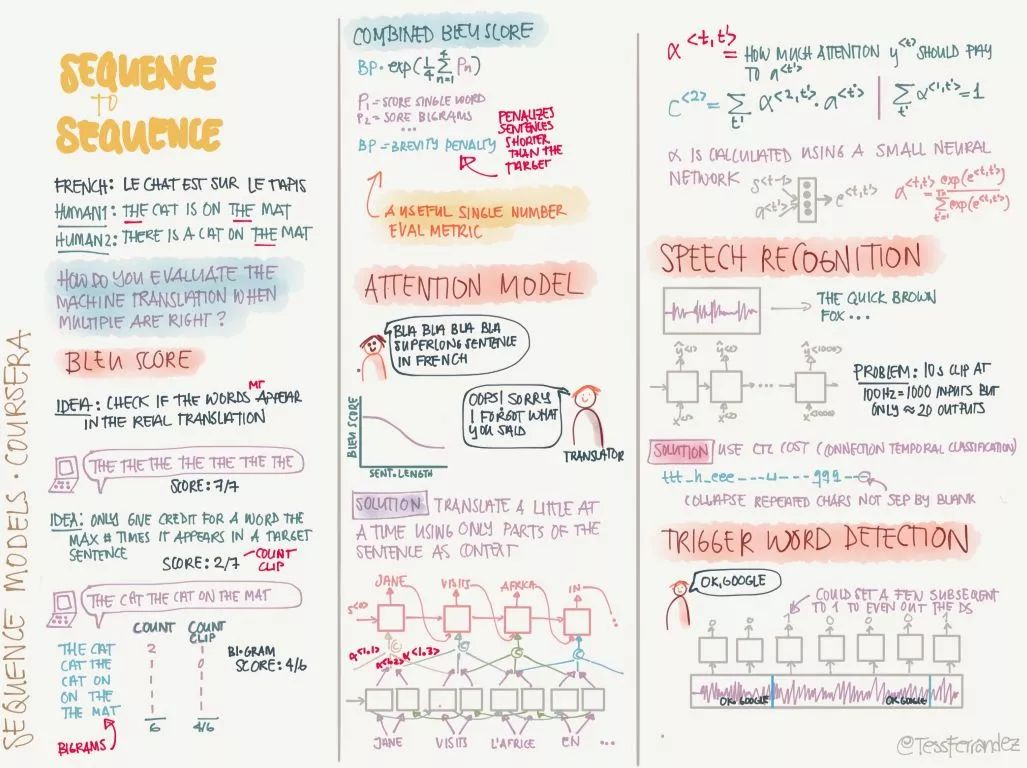 SEQUENCE MODELS · COURSERA
SEQUENCE
TO
SEQUENCE
FRENCH: LE CHAT EST SUR LE TAPIS
HUMAN1: THE CAT IS ON THE MAT
HUMAN2: THERE IS A CAT ON THE MAT
HOW DO YOU EVALUATE THE
MACHINE TRANSLATION WHEN
MULTIPLE ARE RIGHT?
BLEU SCORE
MT
IDEA: CHECK IF THE WORDS APPEAR
IN THE REAL TRANSLATION
THE THE THE THE THE THE THE
SCORE: 7/7
IDEA: ONLY GIVE CREDIT FOR A WORD THE
MAX # TIMES IT APPEARS IN A TARGET
SENTENCE
SCORE: 2/7
COUNT
CLIP
THE CAT THE CAT ON THE MAT
COUNT COUNT CLIP
THE CAT 2 1
CAT THE 1 0
CAT ON 1 1
ON THE 1 1
THE MAT 1 1
6 4/6
BIGRAM
SCORE: 4/6
BIGRAMS
COMBINED BLEU SCORE
BP · exp(1/4 4∑n=1 Pn)
P1 = SCORE SINGLE WORD
P2 = SORE BIGRAMS
...
BP = BREVITY PENALTY
PENALIZES
SENTENCES
SHORTER
THAN THE
TARGET
A USEFUL SINGLE NUMBER
EVAL METRIC
ATTENTION MODEL
BLA BLA BLA BLA
SUPERLONG SENTENCE
IN FRENCH
OOPS! SORRY
I FORGOT WHAT
YOU SAID
TRANSLATOR
BLEU SCORE
SENT. LENGTH
SOLUTION TRANSLATE A LITTLE AT
A TIME USING ONLY PARTS OF THE
SENTENCE AS CONTEXT
JANE VISITS AFRICA IN
S<0> ...
C C C C
α<1,1> α<1,2> α<1,3>
JANE VISITS L'AFRICE EN ...
α<t,t'> = HOW MUCH ATTENTION y<t> SHOULD PAY
TO a<t'>
C<2> = ∑t' α<2,t'> · a<t'> | ∑t' α<1,t'> = 1
α IS CALCULATED USING A SMALL NEURAL
NETWORK
S<t-1>
a<t'>
e<t,t'>
a<t,t'> = exp(e<t,t'>) / Tx∑t'=1 exp(e<t,t'>)
SPEECH RECOGNITION
THE QUICK BROWN
FOX ...
ŷ<1> ŷ<2> ŷ<1000>
...
x<1> x<2> x<1000>
PROBLEM: 10s CLIP AT
100Hz = 1000 INPUTS BUT
ONLY ≈ 20 OUTPUTS
SOLUTION USE CTC COST (CONNECTION TEMPORAL CLASSIFICATION)
ttt_h_eee---⊔---qqq--
COLLAPSE REPEATED CHARS NOT SEP BY BLANK
TRIGGER WORD DETECTION
OK, GOOGLE
COULD SET A FEW SUBSEQENT
TO 1 TO EVEN OUT THE DS
0 0 1 0 0 0 1
OK GOOGLE OK GOOGLE
@TessFerrandez